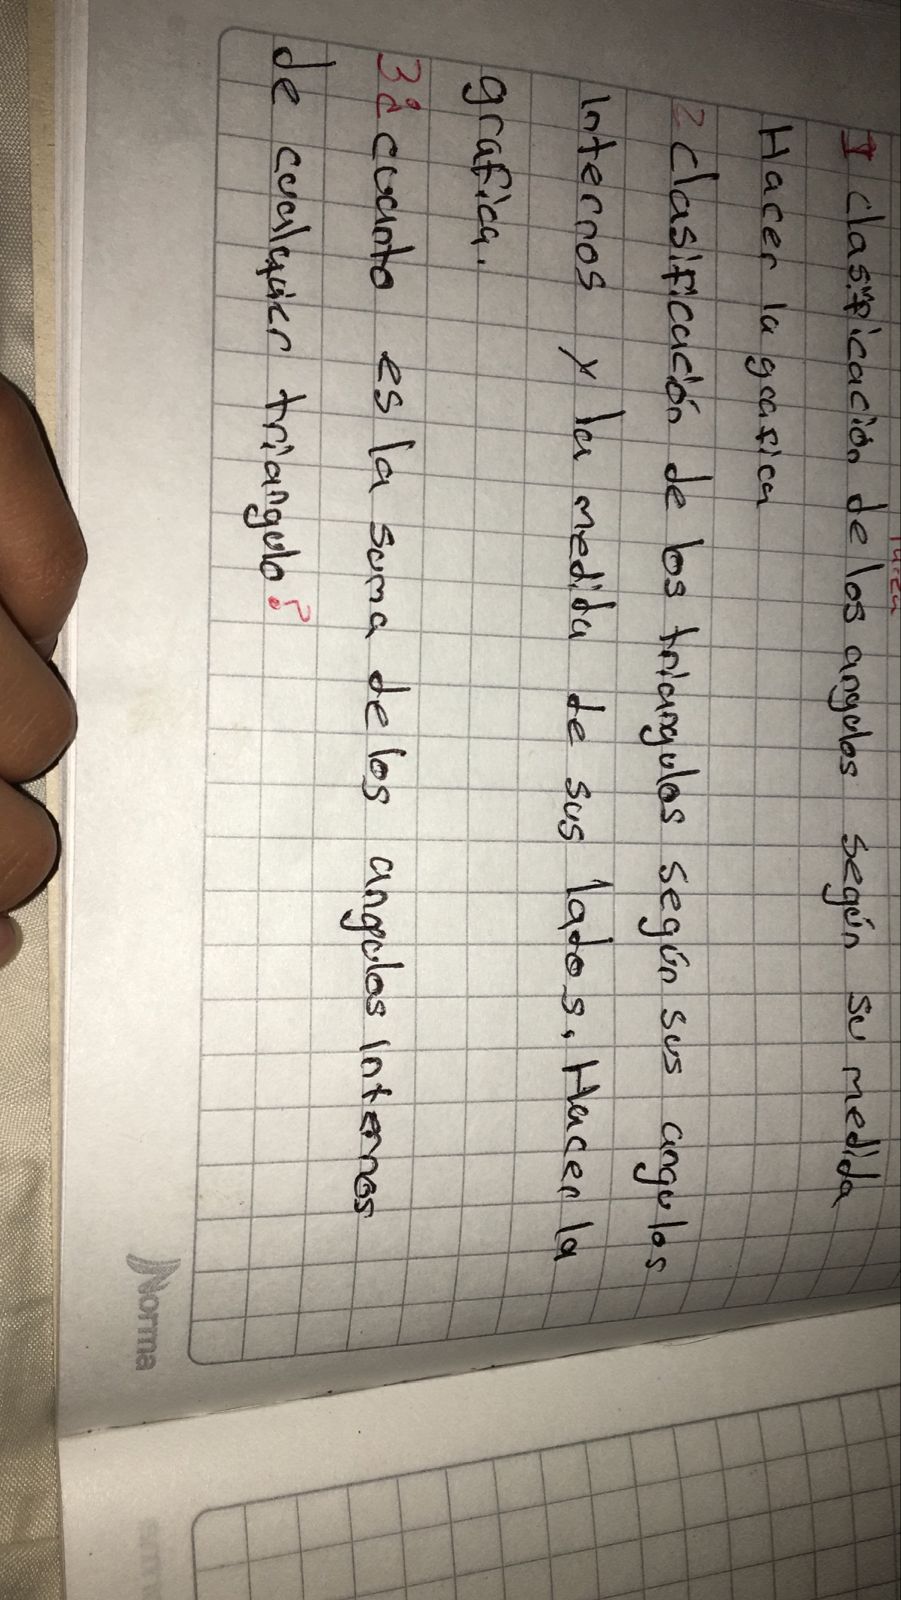 Tarea
1 clasificación de los angulos según su medida
Hacer la grafica
2 clasificación de los triangulos según sus angulos
Internos y la medida de sus lados, Hacer la
grafica.
3 ¿cuanto es la suma de los angulos internos
de cualquier triangulo?
Norma